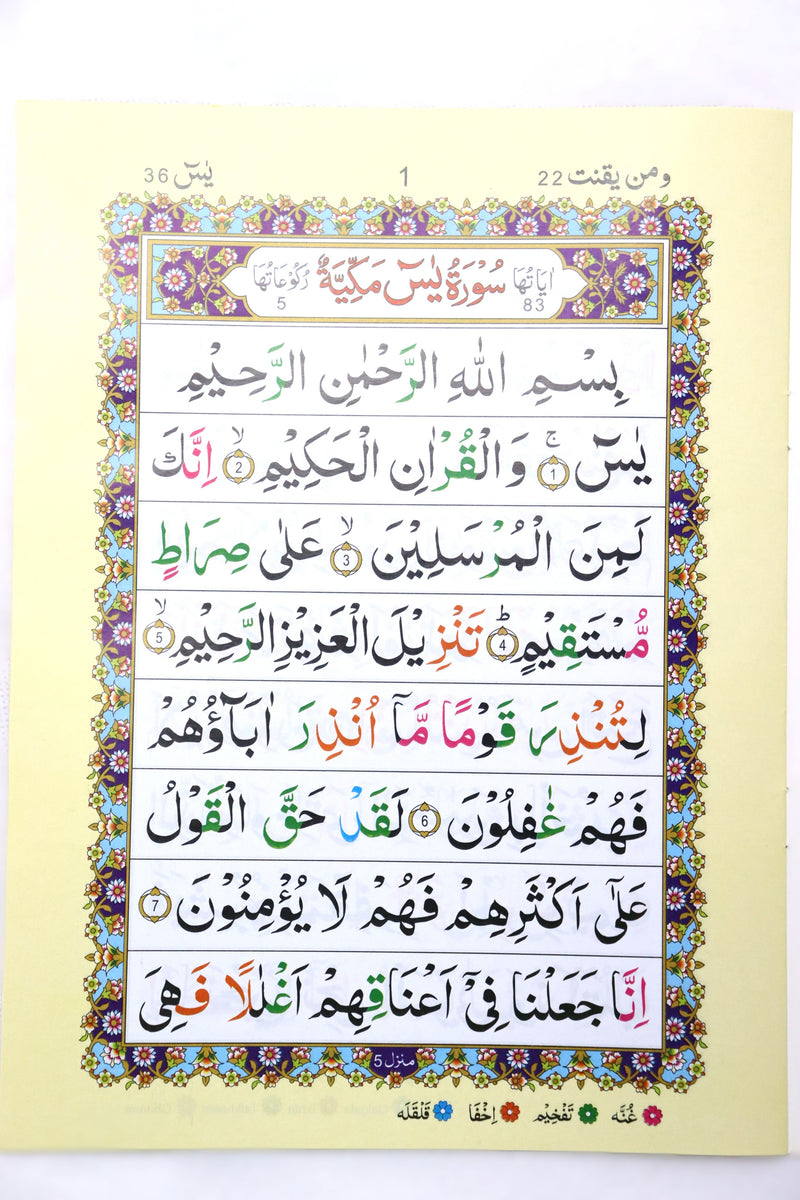 ومن يقنت 22 1 يٰسٓ 36
اٰيَاتُهَا 83 سُوْرَةُ يٰسٓ مَكِّيَّةٌ رُكُوْعَاتُهَا 5
بِسْمِ اللّٰهِ الرَّحْمٰنِ الرَّحِيْمِ
يٰسٓ ۚ ﴿1﴾ وَالْقُرْاٰنِ الْحَكِيْمِ ۙ ﴿2﴾ اِنَّكَ
لَمِنَ الْمُرْسَلِيْنَ ۙ ﴿3﴾ عَلٰى صِرَاطٍ
مُّسْتَقِيْمٍ ؕ ﴿4﴾ تَنْزِيْلَ الْعَزِيْزِ الرَّحِيْمِ ۙ ﴿5﴾
لِتُنْذِرَ قَوْمًا مَّاۤ اُنْذِرَ اٰبَآؤُهُمْ
فَهُمْ غٰفِلُوْنَ ﴿6﴾ لَقَدْ حَقَّ الْقَوْلُ
عَلٰۤى اَكْثَرِهِمْ فَهُمْ لَا يُؤْمِنُوْنَ ﴿7﴾
اِنَّا جَعَلْنَا فِيْۤ اَعْنَاقِهِمْ اَغْلٰلًا فَهِيَ
منزل 5
غُنَّه تَفْخِيْم اِخْفَا قَلْقَلَه